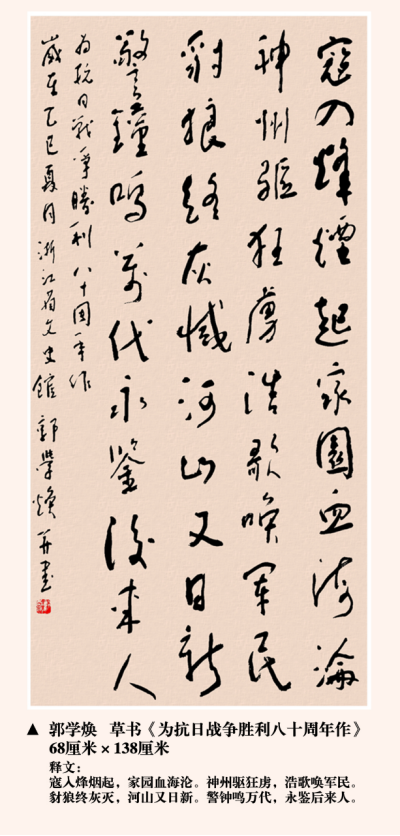 寇入烽煙起家園血海淪
神州驅狂虜浩歌喚軍民
豺狼終灰滅河山又日新
警鐘鳴萬代永鑒後來人
為抗日戰爭勝利八十周年作
歲在乙巳夏月浙江省文史館郭學煥并書
▲ 郭学焕 草书《为抗日战争胜利八十周年作》
68厘米×138厘米
释文：
寇入烽烟起，家园血海沦。神州驱狂虏，浩歌唤军民。
豺狼终灰灭，河山又日新。警钟鸣万代，永鉴后来人。